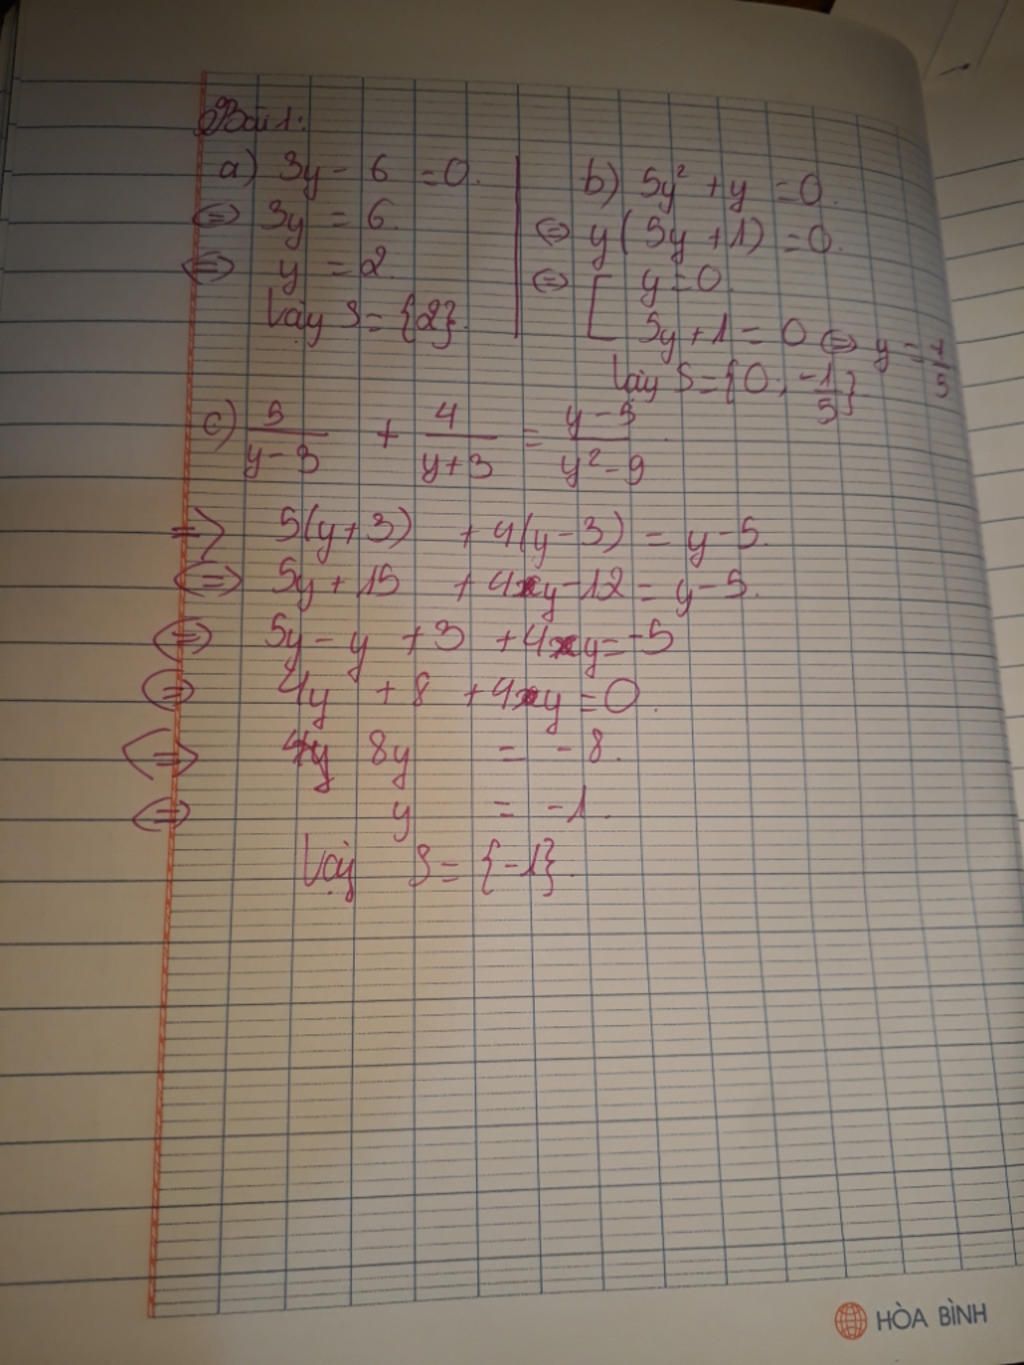 Bài 1:
a) 3y - 6 = 0.
⇔ 3y = 6.
⇔ y = 2.
Vậy S = {2}.
b) 5y² + y = 0.
⇔ y(5y + 1) = 0.
⇔ [ y = 0.
5y + 1 = 0 ⇔ y = -1/5
Vậy S = {0; -1/5}
c) 5/(y - 3) + 4/(y + 3) = (y - 5)/(y² - 9).
=> 5(y + 3) + 4(y - 3) = y - 5.
⇔ 5y + 15 + 4y - 12 = y - 5.
⇔ 5y - y + 3 + 4y = -5
⇔ 4y + 8 + 4y = 0.
⇔ 8y = -8.
⇔ y = -1.
Vậy S = {-1}.
HÒA BÌNH